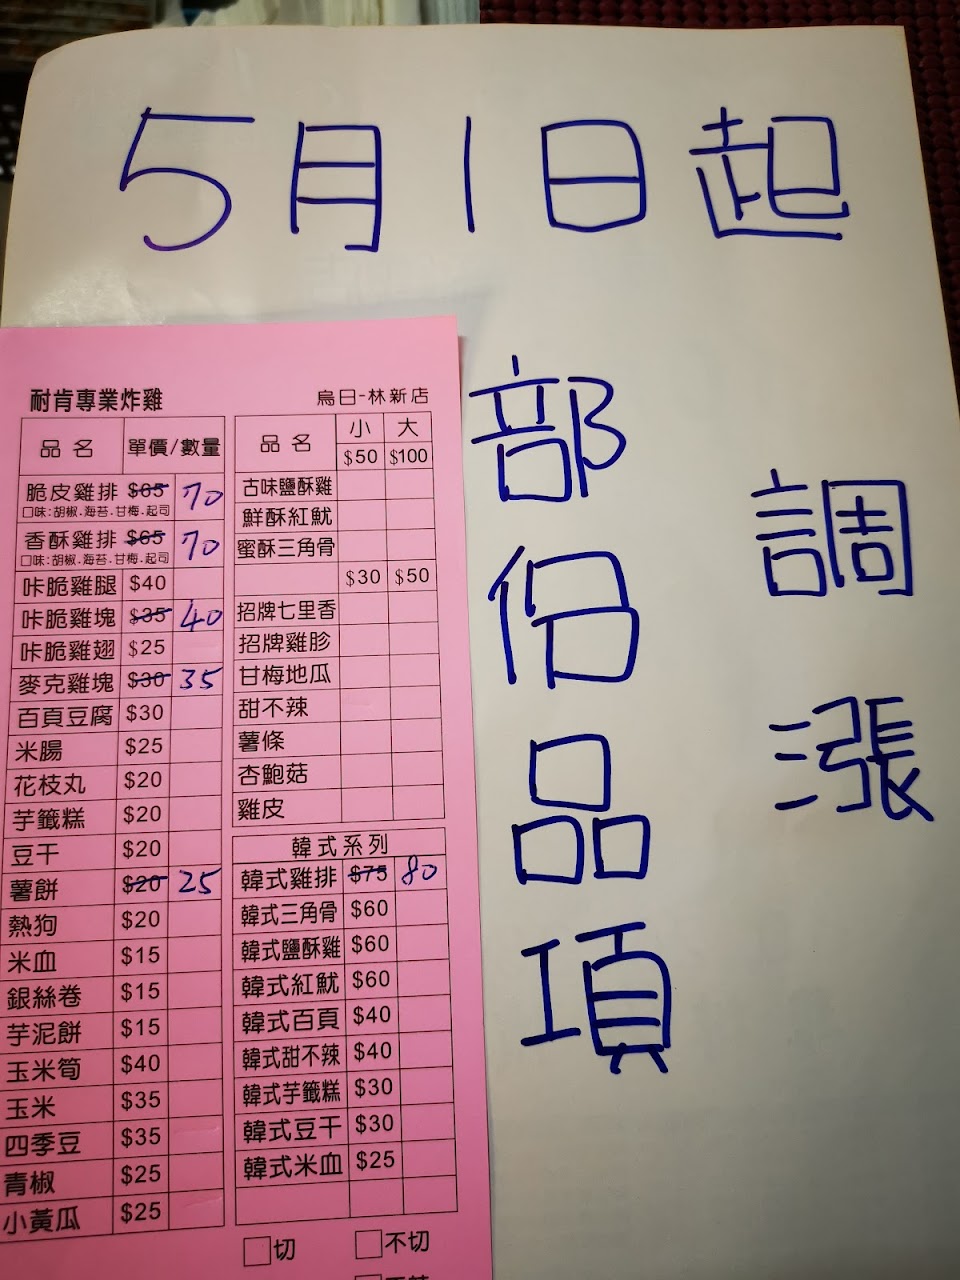 5月1日起
部侣品項
調漲
耐肯專業炸雞 烏日-林新店
品名 單價/數量
脆皮雞排 $65 70
口味:胡椒.海苔.甘梅.起司
香酥雞排 $65 70
口味:胡椒.海苔.甘梅.起司
咔脆雞腿 $40
咔脆雞塊 $35 40
咔脆雞翅 $25
麥克雞塊 $30 35
百頁豆腐 $30
米腸 $25
花枝丸 $20
芋籤糕 $20
豆干 $20
薯餅 $20 25
熱狗 $20
米血 $15
銀絲卷 $15
芋泥餅 $15
玉米筍 $40
玉米 $35
四季豆 $35
青椒 $25
小黃瓜 $25
品名 小 大
$50 $100
古味鹽酥雞
鮮酥紅魷
蜜酥三角骨
$30 $50
招牌七里香
招牌雞胗
甘梅地瓜
甜不辣
薯條
杏鮑菇
雞皮
韓式系列
韓式雞排 $75 80
韓式三角骨 $60
韓式鹽酥雞 $60
韓式紅魷 $60
韓式百頁 $40
韓式甜不辣 $40
韓式芋籤糕 $30
韓式豆干 $30
韓式米血 $25
切 不切